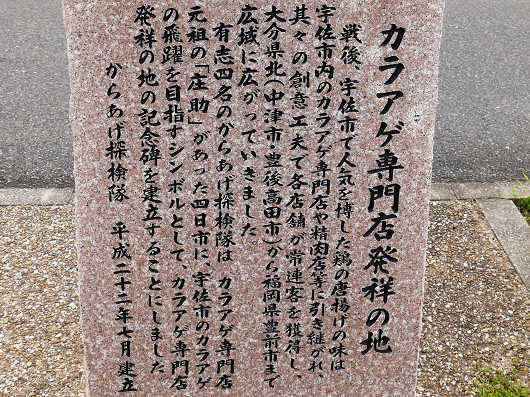 カラアゲ専門店発祥の地
戦後、宇佐市で人気を博した鶏の唐揚げの味は
宇佐市内のカラアゲ専門店や精肉店等に引き継がれ、
其々の創意工夫で各店舗が常連客を獲得し、
大分県北(中津市・豊後高田市)から福岡県豊前市まで
広域に広がっていきました。
有志四名のからあげ探検隊は カラアゲ専門店
元祖の「庄助」があった四日市に、宇佐市のカラアゲ
の飛躍を目指すシンボルとして、カラアゲ専門店
発祥の地の記念碑を建立することにしました
からあげ探検隊 平成二十二年七月 建立